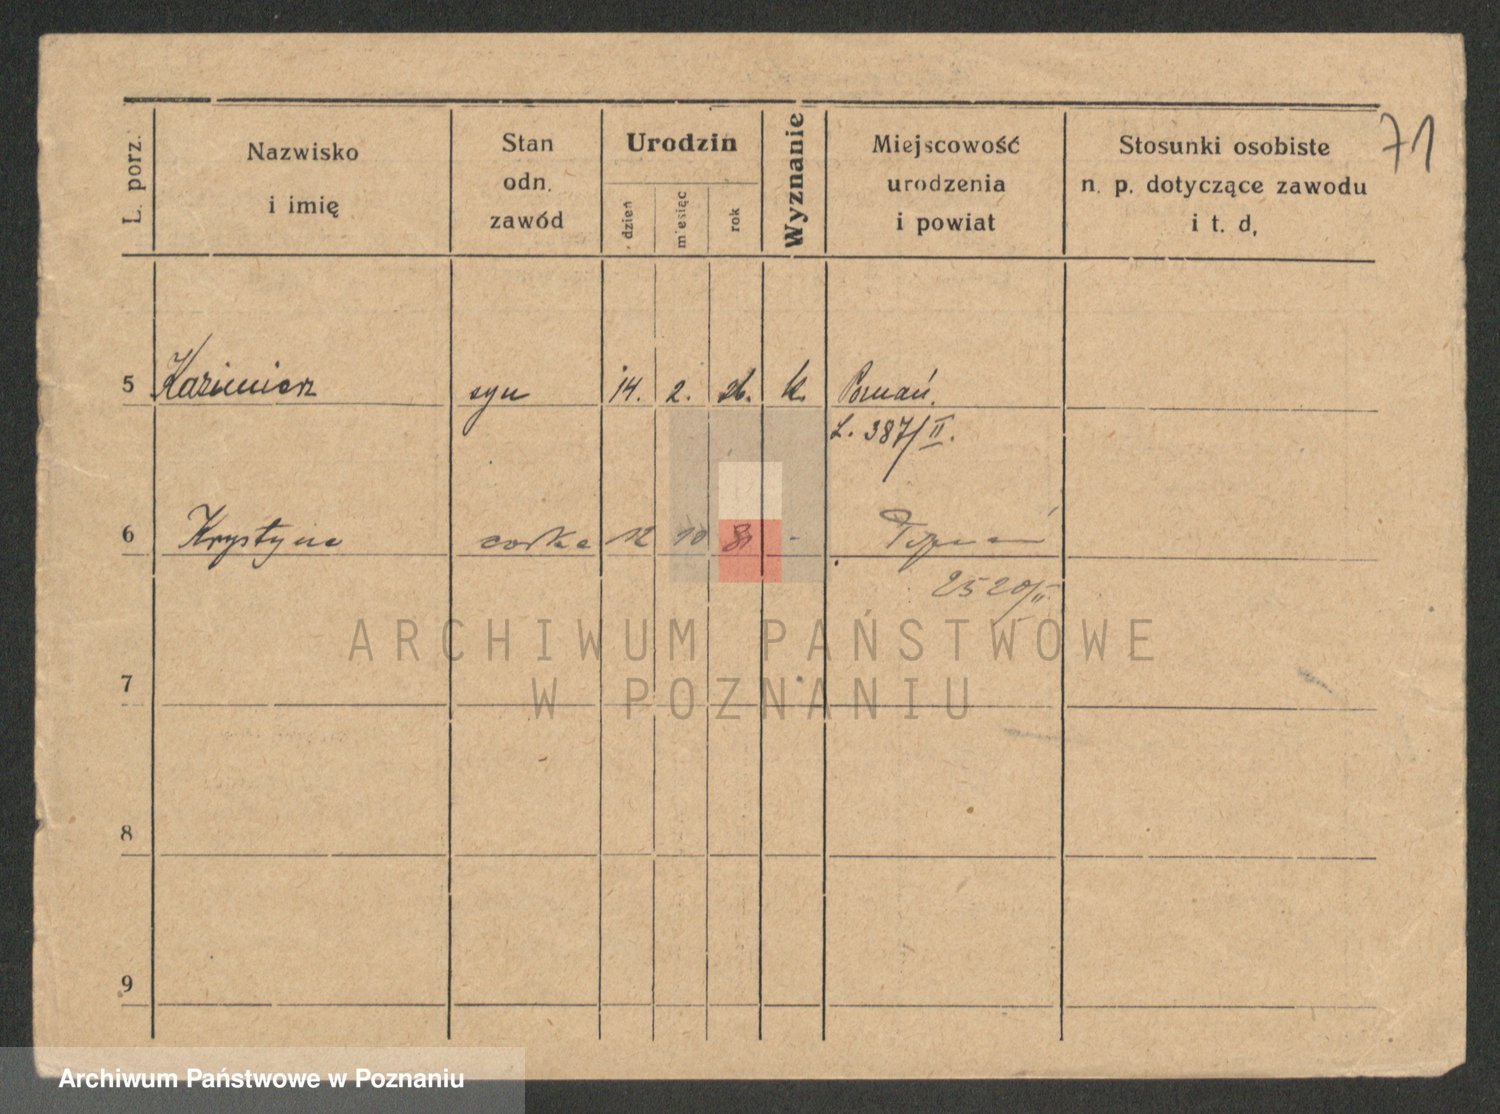 71
L. porz.
Nazwisko
i imię
Stan
odn.
zawód
Urodzin
dzień
miesiąc
rok
Wyznanie
Miejscowość
urodzenia
i powiat
Stosunki osobiste
n. p. dotyczące zawodu
i t. d,
5 Kazimierz syn 14. 2. 26. k. Poznań.
L. 387/II.
6 Krystyna corka 12 10 31 - Poznań
2520/II.
7
8
9
ARCHIWUM PAŃSTWOWE
W POZNANIU
Archiwum Państwowe w Poznaniu